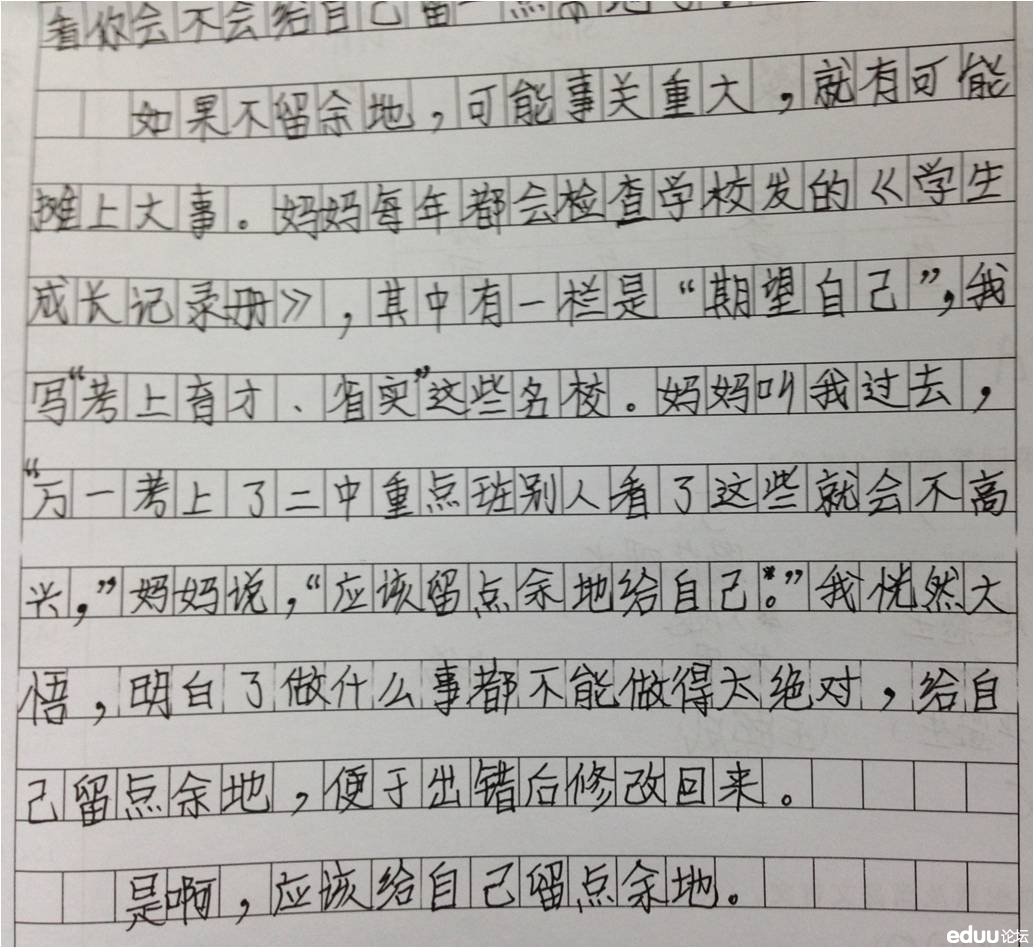 看你会不会给自己留一点余地了。
如果不留余地，可能事关重大，就有可能
摊上大事。妈妈每年都会检查学校发的《学生
成长记录册》，其中有一栏是“期望自己”，我
写“考上育才、省实”这些名校。妈妈叫我过去，
“万一考上了二中重点班别人看了这些就会不高
兴，”妈妈说，“应该留点余地给自己。”我恍然大
悟，明白了做什么事都不能做得太绝对，给自
己留点余地，便于出错后修改回来。
是啊，应该给自己留点余地。
eduu论坛